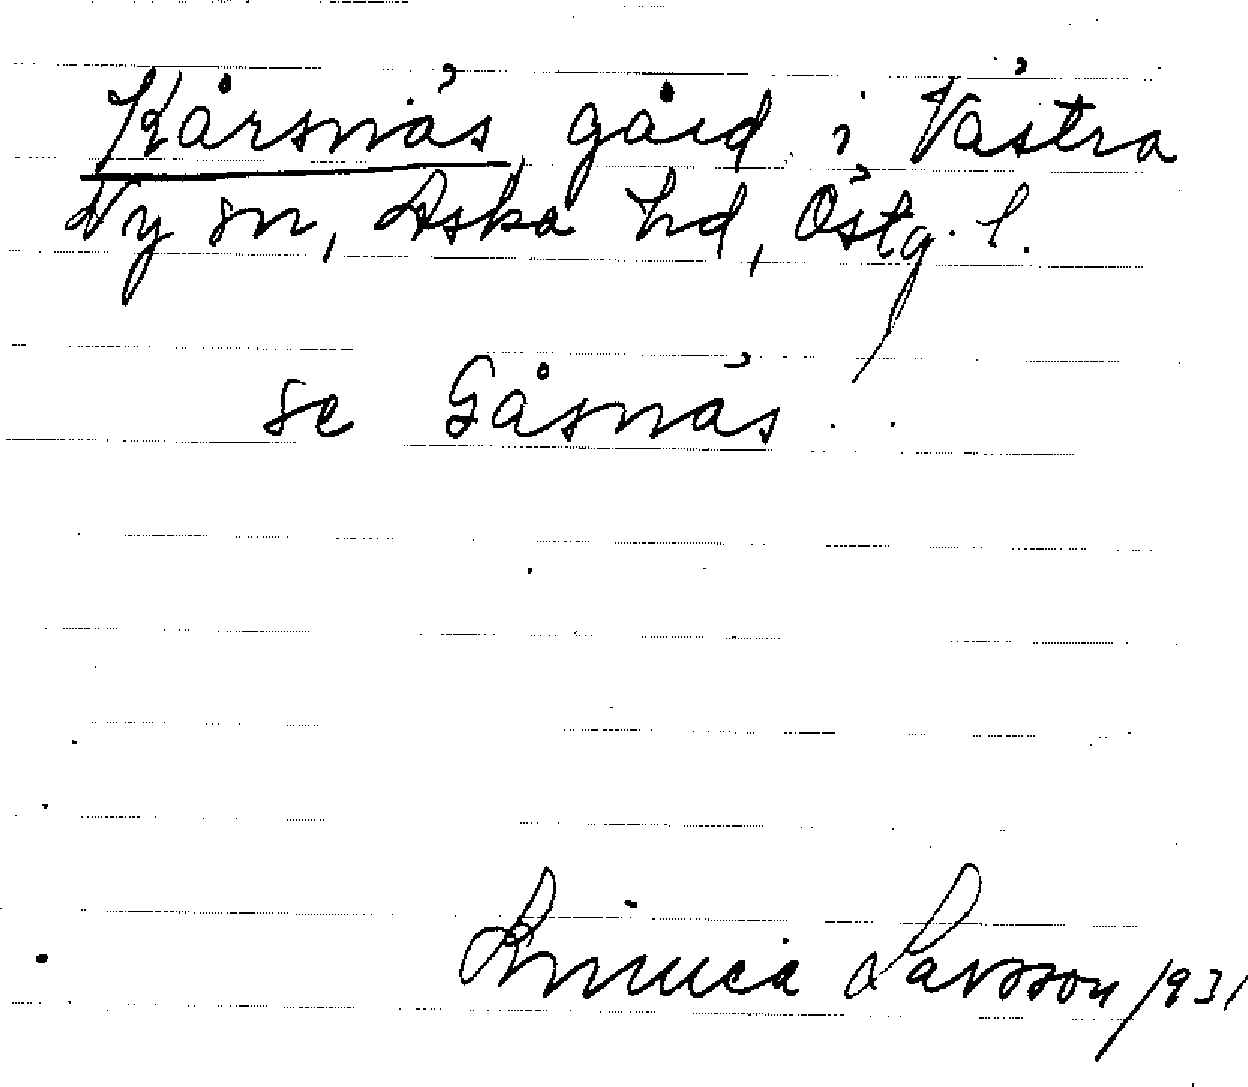 Kårsnäs, gård i Västra
Ny sn, Aska hd, Östg. l.
se Gåsnäs.
Larsson 1931